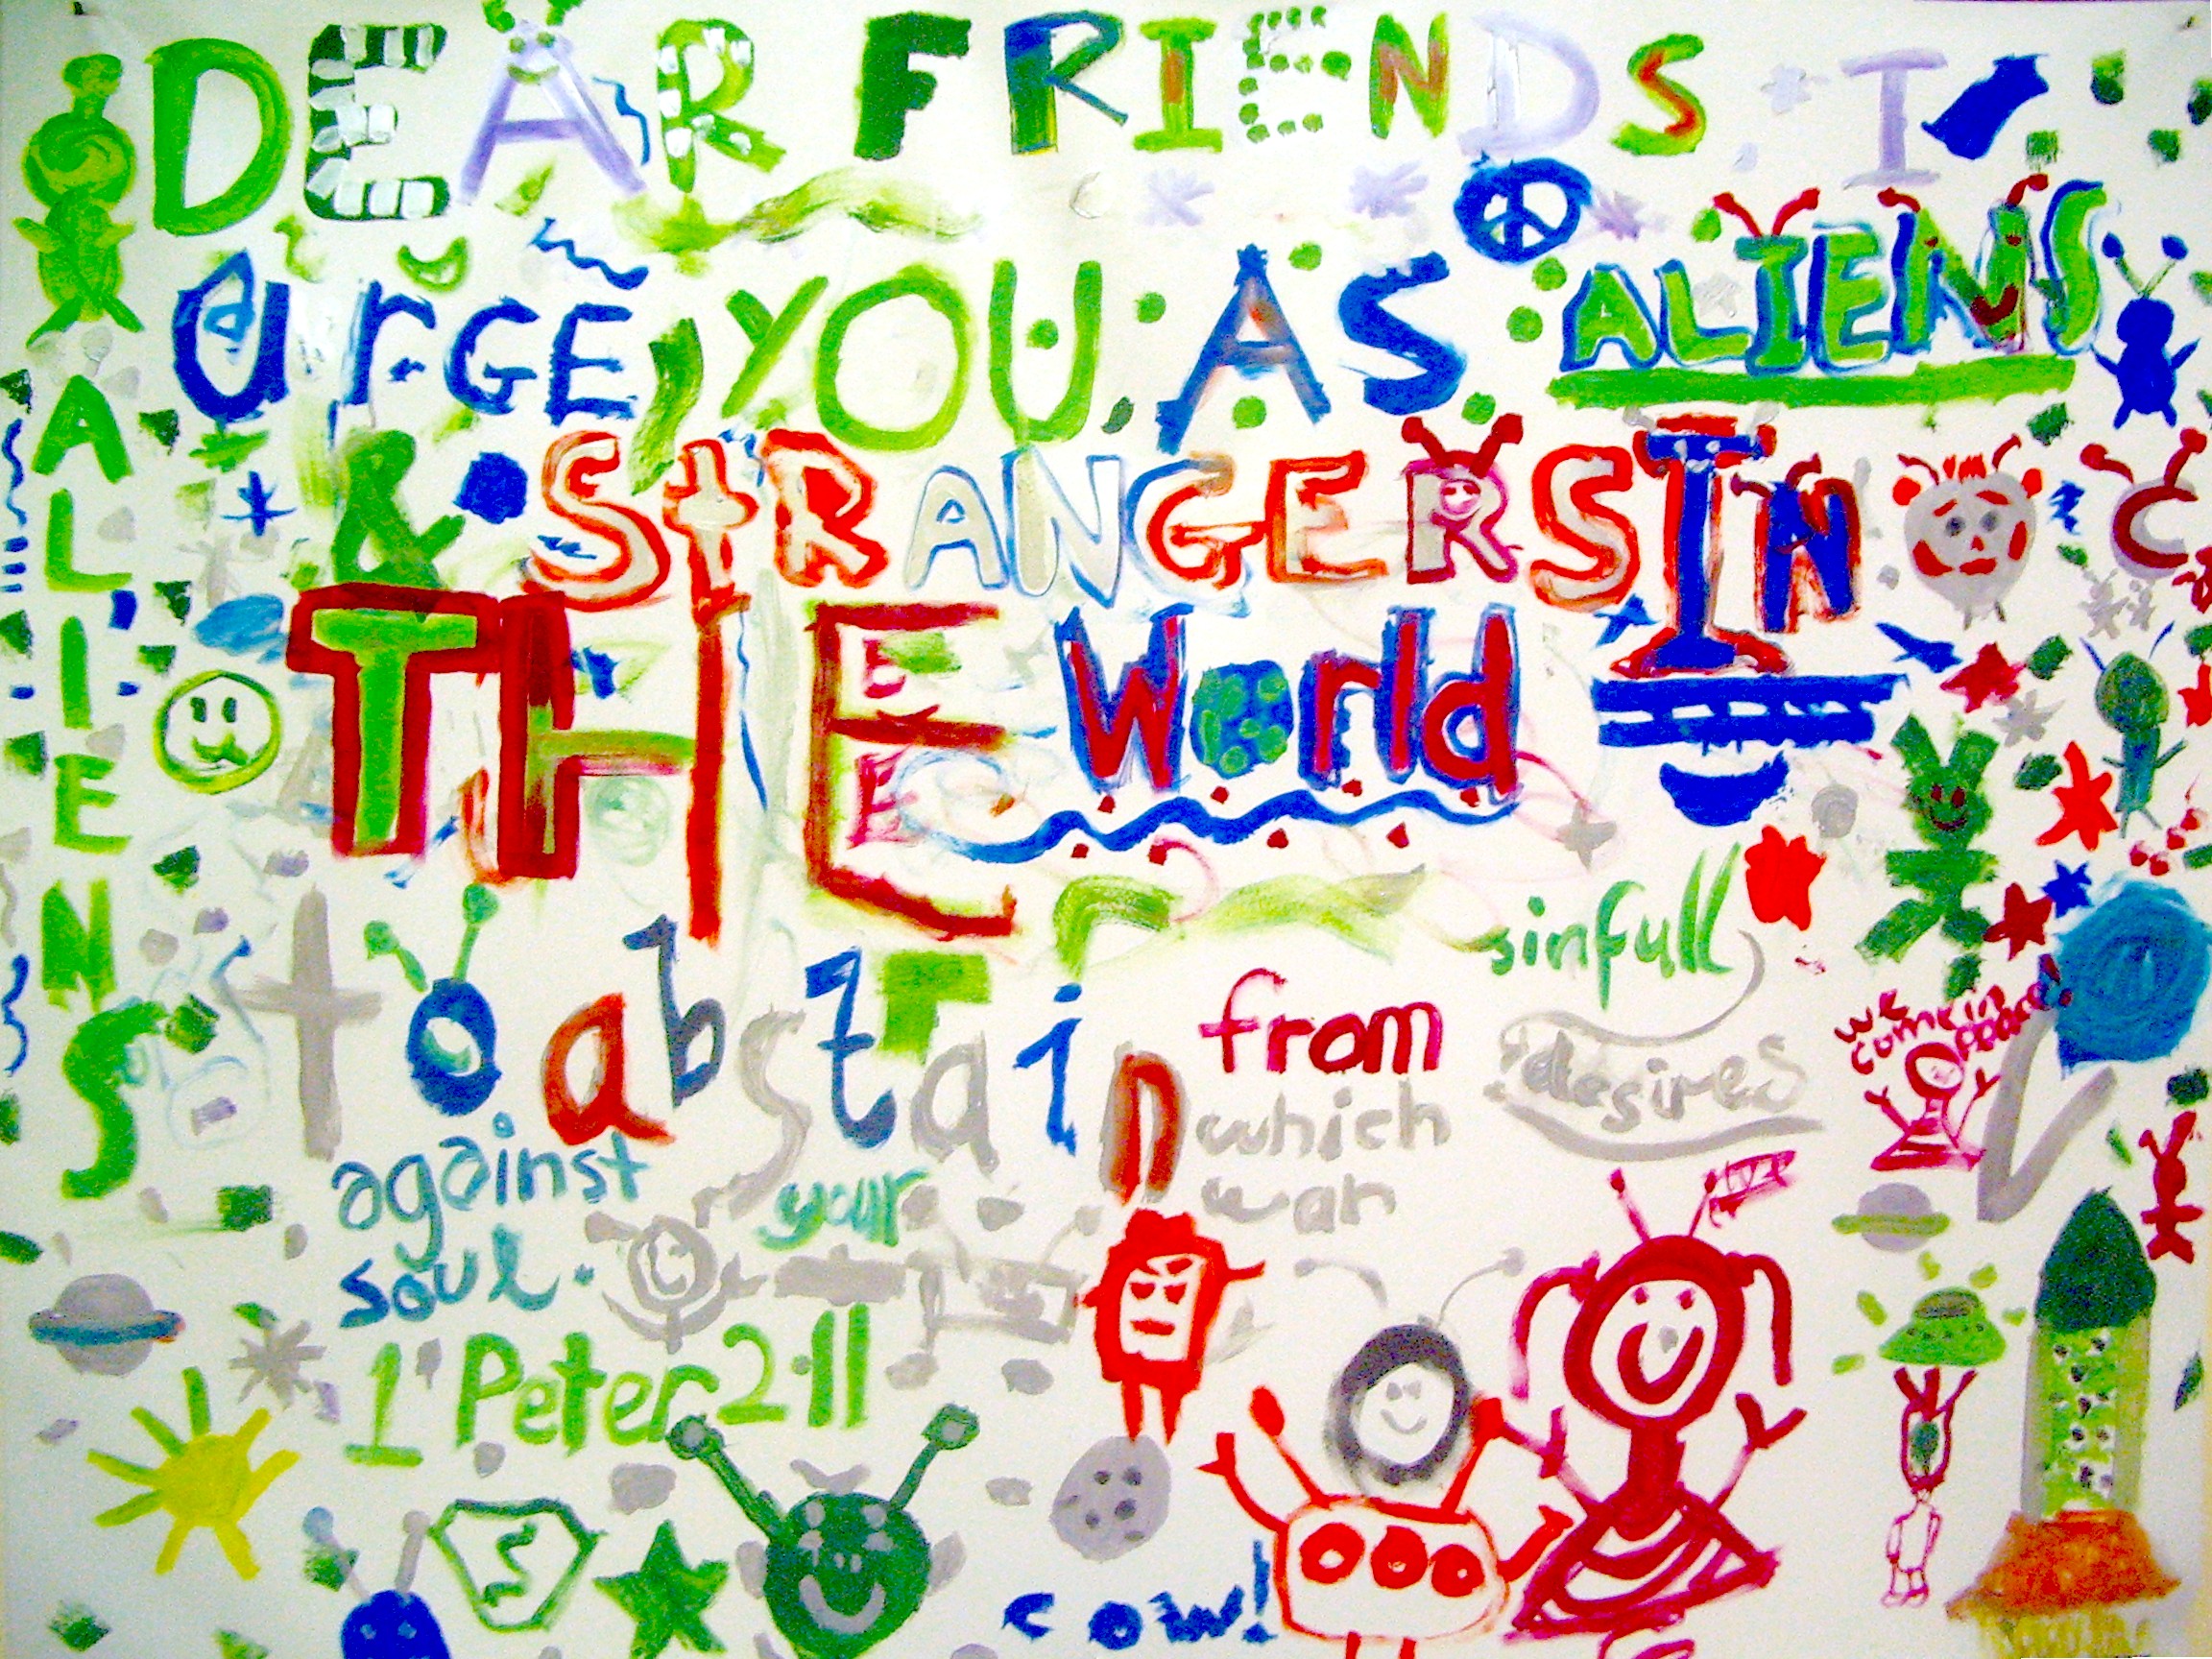 DEAR FRIENDS I
urGE YOU AS ALIENS
& StRANGERS IN
THE World
to abstain from sinfull
desires
which
war
against your
soul.
1 Peter 2:11
ALIENS
we
cum in
peace!
S
cow!